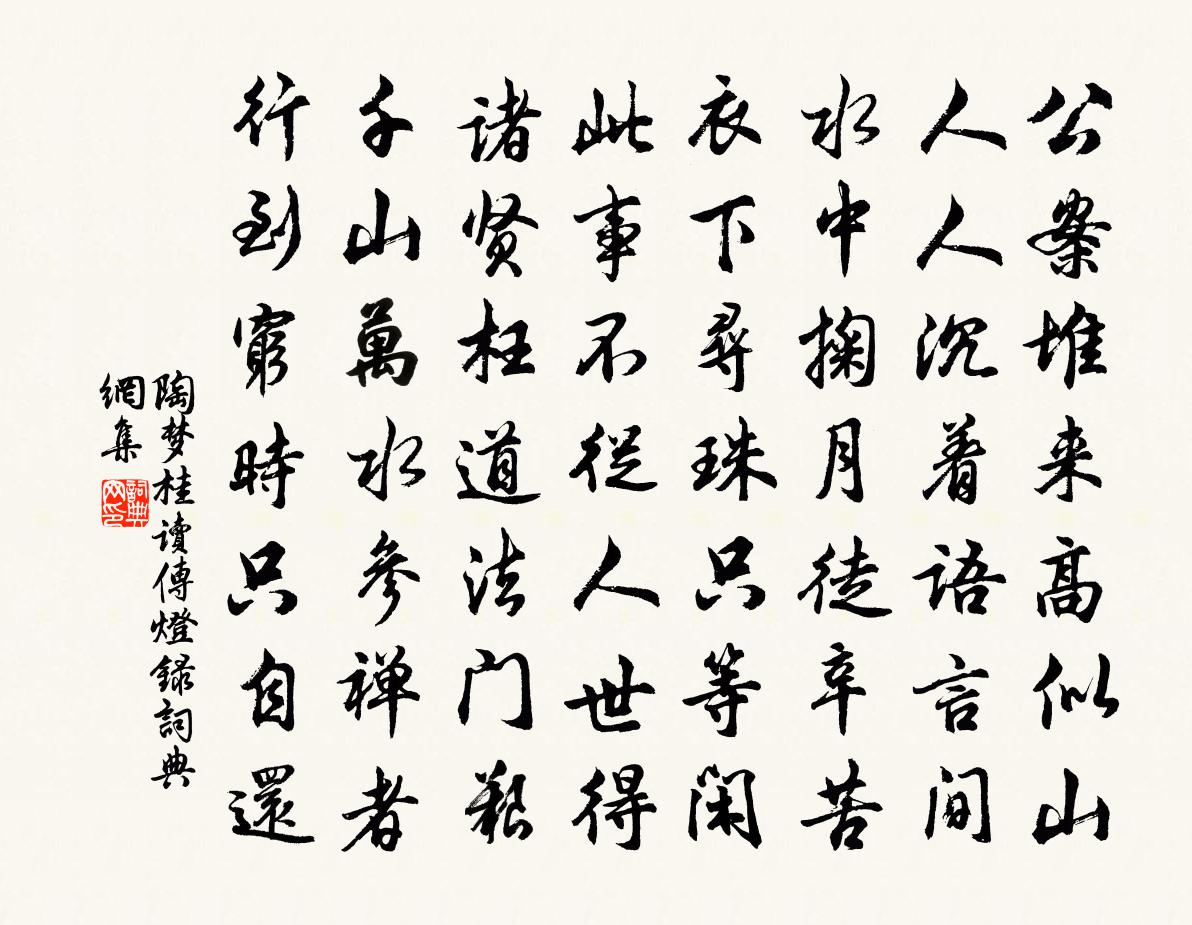 公案堆来高似山
人人沉着语言间
水中掬月徒辛苦
衣下尋珠只等闲
此事不従人世得
诸贤枉道法门艱
千山萬水参禅者
行到窮時只自還
陶梦桂讀傳燈録詞典
網集
詞典
网印